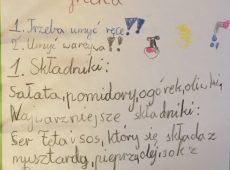 1. Trzeba umyć ręce!!
2. Umyć warzywa!!
1. Składniki:
Sałata, pomidory, ogórek, oliwki,
Najważniejsze składniki:
Ser feta i sos, który się składa z
musztardy, pieprzu, olej, sok z